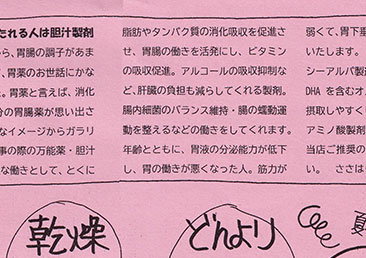 たれる人は胆汁製剤
から、胃腸の調子があま
、胃薬のお世話にかな
。胃薬と言えば、消化
分の胃腸薬が思い出さ
なイメージからガラリ
事の際の万能薬・胆汁
な働きとして、とくに
脂肪やタンパク質の消化吸収を促進さ
せ、胃腸の働きを活発にし、ビタミン
の吸収促進。アルコールの吸収抑制な
ど、肝臓の負担も減らしてくれる製剤。
腸内細菌のバランス維持・腸の蠕動運
動を整えるなどの働きをしてくれます。
年齢とともに、胃液の分泌能力が低下
し、胃の働きが悪くなった人。筋力が
弱くて、胃下垂
いたします。
シーアルパ製造
DHA を含むオ
摂取しやすく
アミノ酸製剤
当店ご推奨の
い。 ささは
乾燥
どんより